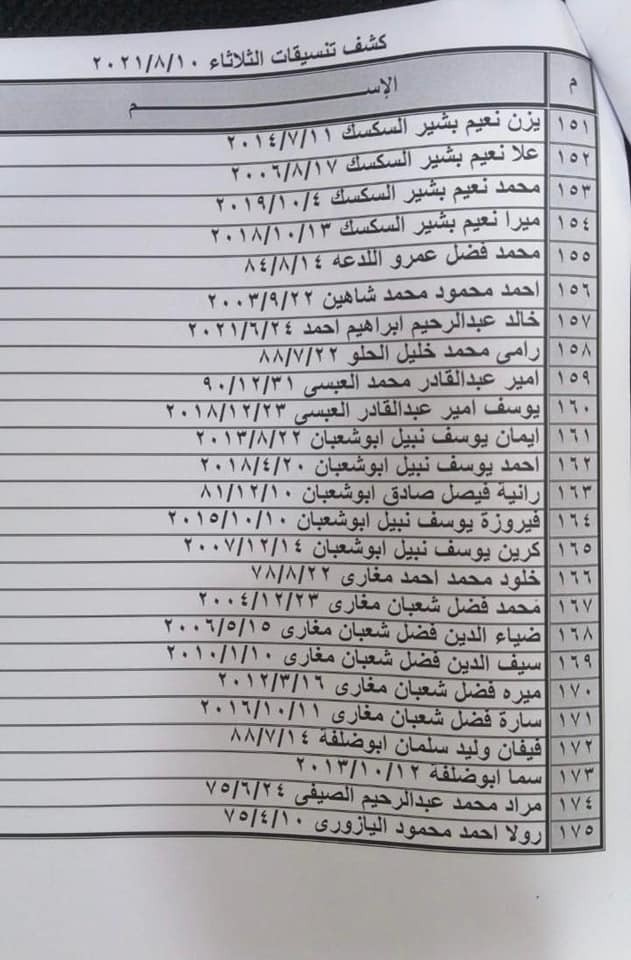 كشف تنسيقات الثلاثاء ٢٠٢١/٨/١٠
م الإســـــــــــــــــــــــم
١٥١ يزن نعيم بشير السكسك ٢٠١٤/٧/١١
١٥٢ علا نعيم بشير السكسك ٢٠٠٦/٨/١٧
١٥٣ محمد نعيم بشير السكسك ٢٠١٩/١٠/٤
١٥٤ ميرا نعيم بشير السكسك ٢٠١٨/١٠/١٣
١٥٥ محمد فضل عمرو اللدعه ٨٤/٨/١٤
١٥٦ احمد محمود محمد شاهين ٢٠٠٣/٩/٢٢
١٥٧ خالد عبدالرحيم ابراهيم احمد ٢٠٢١/٦/٢٤
١٥٨ رامى محمد خليل الحلو ٨٨/٧/٢٢
١٥٩ امير عبدالقادر محمد العبسى ٩٠/١٢/٣١
١٦٠ يوسف امير عبدالقادر العبسى ٢٠١٨/١٢/٢٣
١٦١ ايمان يوسف نبيل ابوشعبان ٢٠١٣/٨/٢٢
١٦٢ احمد يوسف نبيل ابوشعبان ٢٠١٨/٤/٢٠
١٦٣ رانية فيصل صادق ابوشعبان ٨١/١٢/١٠
١٦٤ فيروزة يوسف نبيل ابوشعبان ٢٠١٥/١٠/١٠
١٦٥ كرين يوسف نبيل ابوشعبان ٢٠٠٧/١٢/١٤
١٦٦ خلود محمد احمد مغارى ٧٨/٨/٢٢
١٦٧ محمد فضل شعبان مغارى ٢٠٠٤/١٢/٢٣
١٦٨ ضياء الدين فضل شعبان مغارى ٢٠٠٦/٥/١٥
١٦٩ سيف الدين فضل شعبان مغارى ٢٠١٠/١/١٠
١٧٠ ميره فضل شعبان مغارى ٢٠١٢/٣/١٦
١٧١ سارة فضل شعبان مغارى ٢٠١٦/١٠/١١
١٧٢ فيفان وليد سلمان ابوضلفة ٨٨/٧/١٤
١٧٣ سما ابوضلفة ٢٠١٣/١٠/١٢
١٧٤ مراد محمد عبدالرحيم الصيفى ٧٥/٦/٢٤
١٧٥ رولا احمد محمود اليازورى ٧٥/٤/١٠